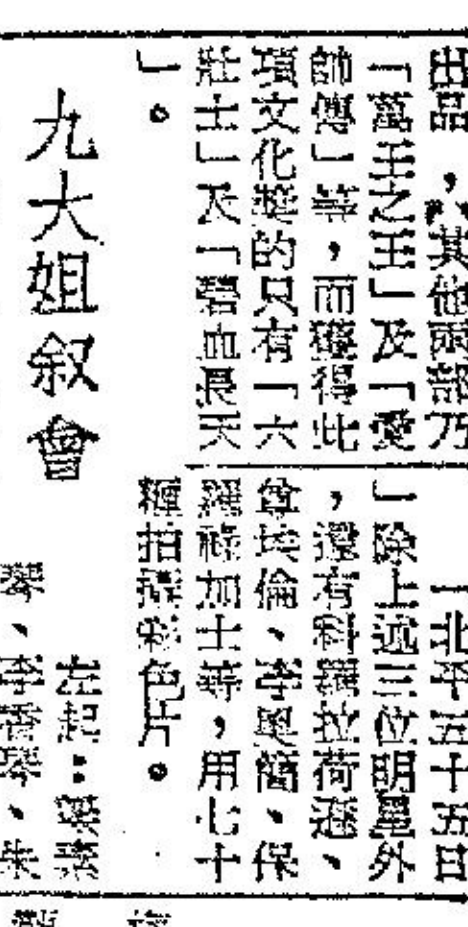 出品，其他兩部乃
「萬王之王」及「愛
師傅」等，而獲得此
項文化獎的只有「六
壯士」及「碧血長天
」。
「北平五十五日
」除上述三位明星外
，還有科羅拉荷遜、
尊埃倫、李奧簡、保
羅祿加士等，用七十
糎拍攝彩色片。
九大姐叙會
左起：
琴、李香琴、朱